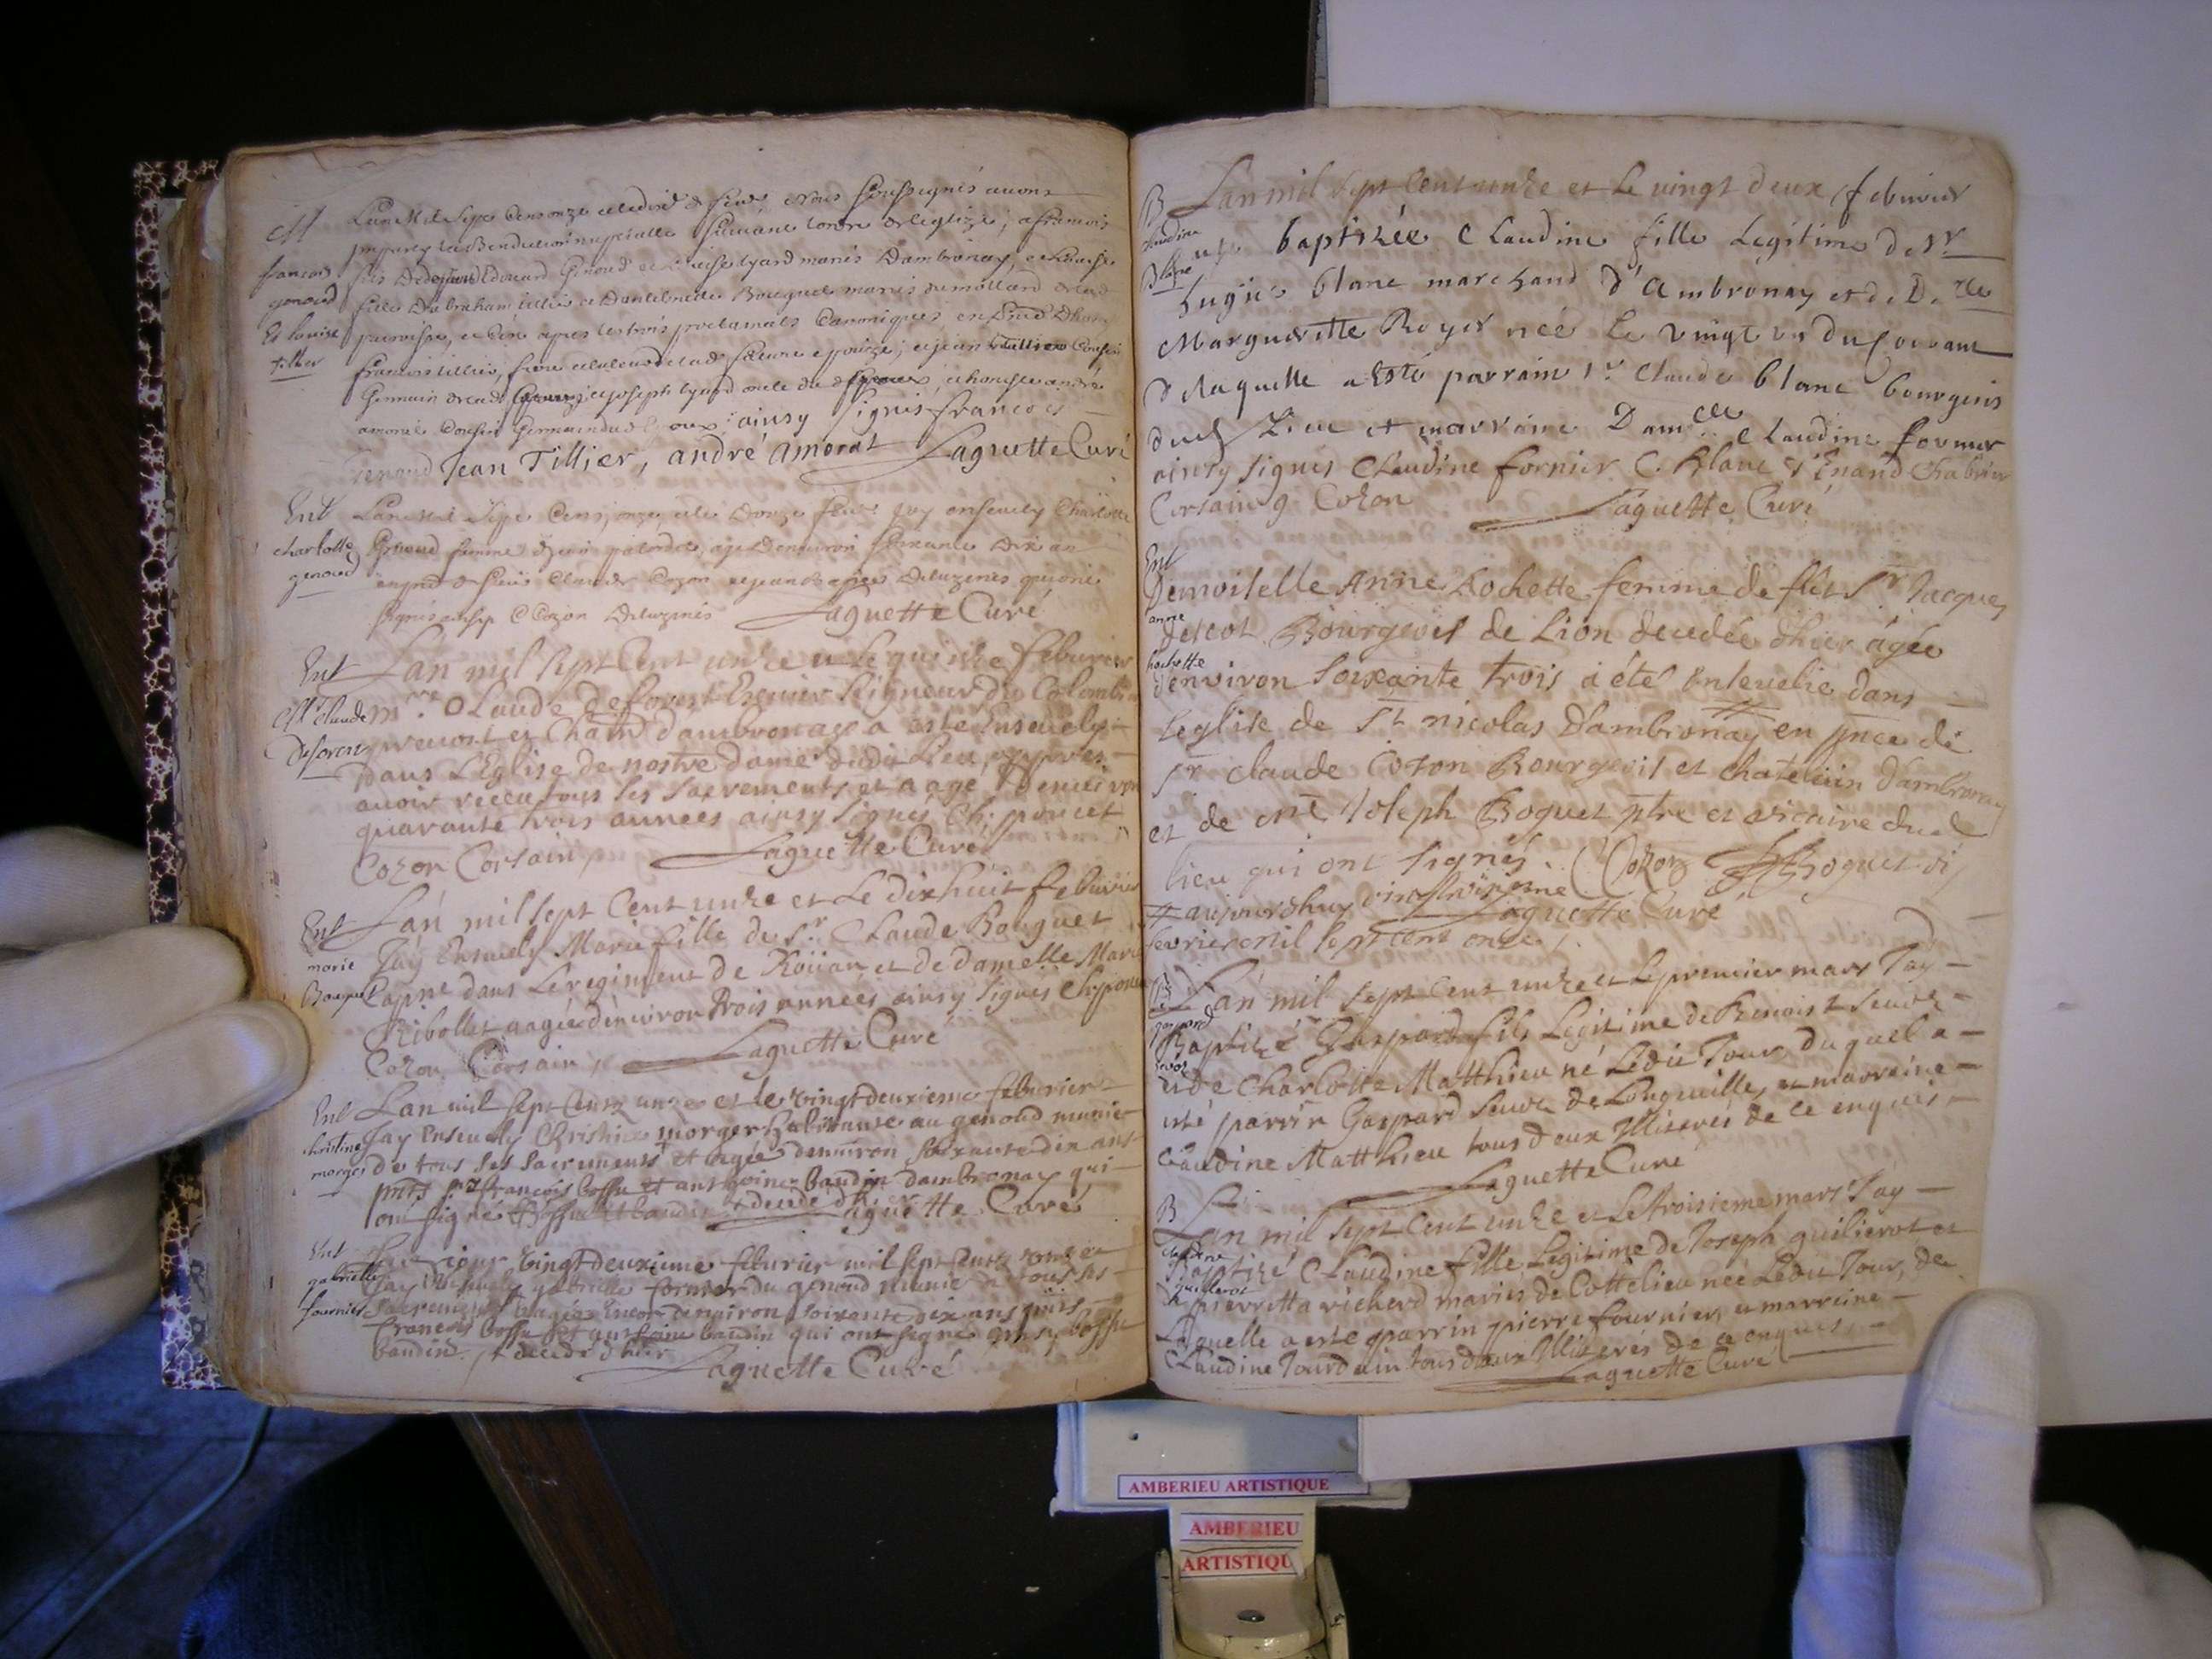 M
françois
genoud
Et louise
tillier
L'an Mil Sept Cens onze et le dix feuv. nous Soussignés avons
imparty la Benediction nuptialle suivant l'ordre de leglize, a francois
fils Edouard Genoud et lyard mariés Dambronay, et Louise
fille D'abraham tillier et Bouquet mariés du mollard
parroisse, et Ce apres les trois proclamats Canoniques
francois tillier, frere et jean tillier Cousin
Germain et joseph lyard oncle et honeste andré
amorat Cousin Germain ainsy Signés francois
genoud Jean Tillier, andré amorat Laguette Curé
Ent
charlotte
genoud
L'an Mil Sept Cens onze et le Douze feuv. jay ensevely Charlotte
Genoud femme agée Denviron Soixante Dix an
Claude Cozon et jean Deluzines qui ont
signés ainsy C Cozon Deluzines Laguette Curé
Ent
Mr Claude
Deforest
L'an mil sept Cent unze et le quinze feburier
Claude Deforest Escuier Seigneur du Colombier
prevost et Chatn d'ambronay a esté Ensevely
Dans L'Eglise de nostre dame dudit Lieu, appres
avoir receu tous les Sacrements et aagé Denviron
quarante trois années ainsy Signés Ch. poncet
Cozon Corsain Laguette Curé
Ent
marie
Bouquet
L'an mil sept Cent unze et Le dixhuit feburier
Jay Ensevely Marie fille de Sr Claude Bouquet
Capne dans Le regiment de Roüan, et de damelle Marie
Ribollet aagée d'environ trois années ainsy Signés Ch poncet
Cozon Corsain Laguette Curé
Ent
christine
morger
L'an mil sept Cent unze et le vingtdeuxieme feburier
Jay Ensevely Christine morger habitante au genoud munie
de tous ses sacrements et agée denviron soixante dix ans
pnts françois bossu et anthoine baudin dambronay qui
ont signé Bossu et baudin + decedé dhier Laguette Curé
Ent
gabrielle
fournier
jour vingtdeuxieme feburier mil sept Cent onze
Jay Ensevely gabrielle fornier du genoud munie de tous ses
Sacrements agée denviron soixante dix ans pnts
francois bossu et anthoine baudin qui ont signé ainsy bossu
baudin. + decedé dhier Laguette Curé
B
claudine
Blanc
L'an mil sept Cent unze et le vingt deux febvrier
baptizée Claudine fille Legitime de Sr
hugues blanc marchand d'Ambronay et de D.lle
Marguerite Royer née le vingt un du Courant
De laquelle a Esté parrain Sr Claude blanc bourgeois
dud Lieu et marraine Damlle Claudine fornier
ainsy signés Claudine fornier C. Blanc Enand Chabrier
Corsain g Cozon Laguette Curé
Ent
anne
hochette
Demoiselle Anne hochette femme de fût Sr Jacques
Descot Bourgeois de Lion decedée dhier âgée
d'environ soixante trois a été Ensevelie dans
l'église de St nicolas d'ambronay en pnce de
Sr claude Cozon Bourgeois et chatelain d'ambronay
et de Me Joseph Boquet ptre et vicaire dud
lieu qui ont signés. C Cozon JBoquet vi
# aujourdhuy Laguette Curé
fevrier mil sept cent onze
B
gaspard
L'an mil sept Cent unze et le premier mars Jay
Baptizé Gaspard fils Legitime de Benoist
et de Charlotte Matthieu né Ledit Jour duquel a
esté parrin Gaspard de Longueville, et marraine
Claudine Matthieu tous deux Illiterés de ce enquis
Laguette Curé
B
claudine
guilierot
L'an mil sept Cent unze et Le troisieme mars Jay
Baptizé Claudine fille Legitime de Joseph guilierot et
de pierretta richerd mariés de Cottelieu née Ledit Jour, de
Laquelle a esté parrin pierre fournier, et marreine
Claudine Jourdain tous deux Illiterés de ce enquis
Laguette Curé
AMBERIEU ARTISTIQUE
AMBERIEU
ARTISTIQU